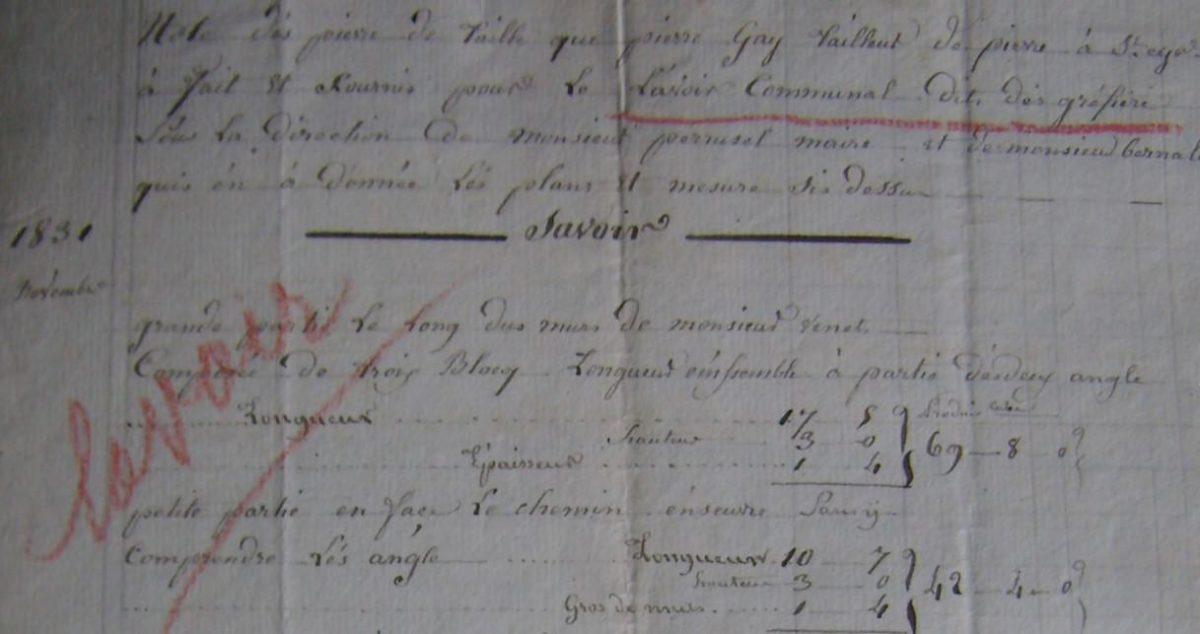 Note dés pierre de Taille que pierre Gay tailleut de pierre à St. cyr
à fait et fournis pour Le Lavoir Communal dit. dés gréfiéré
Sous La direction de monsieur perrusel maire et de monsieur bernat
quis én à donnée Lés plans et mesure sis dessu
1831 Savoir
novembre
Lavoir
grande partié Le Long dus murs de monsieur venet.
Composée de trois Blocq Longueur éinssemble à partié désdeux angle
Longueur 17 5 Produis cube
hauteur 3 0 69 - 8 0
Épaisseur 1 4
petite partié en face Le chemin énseuvre
Comprendre Lés angle Longueur 10 7
hauteur 3 0 42 - 4 - 0
Gros de murs 1 4